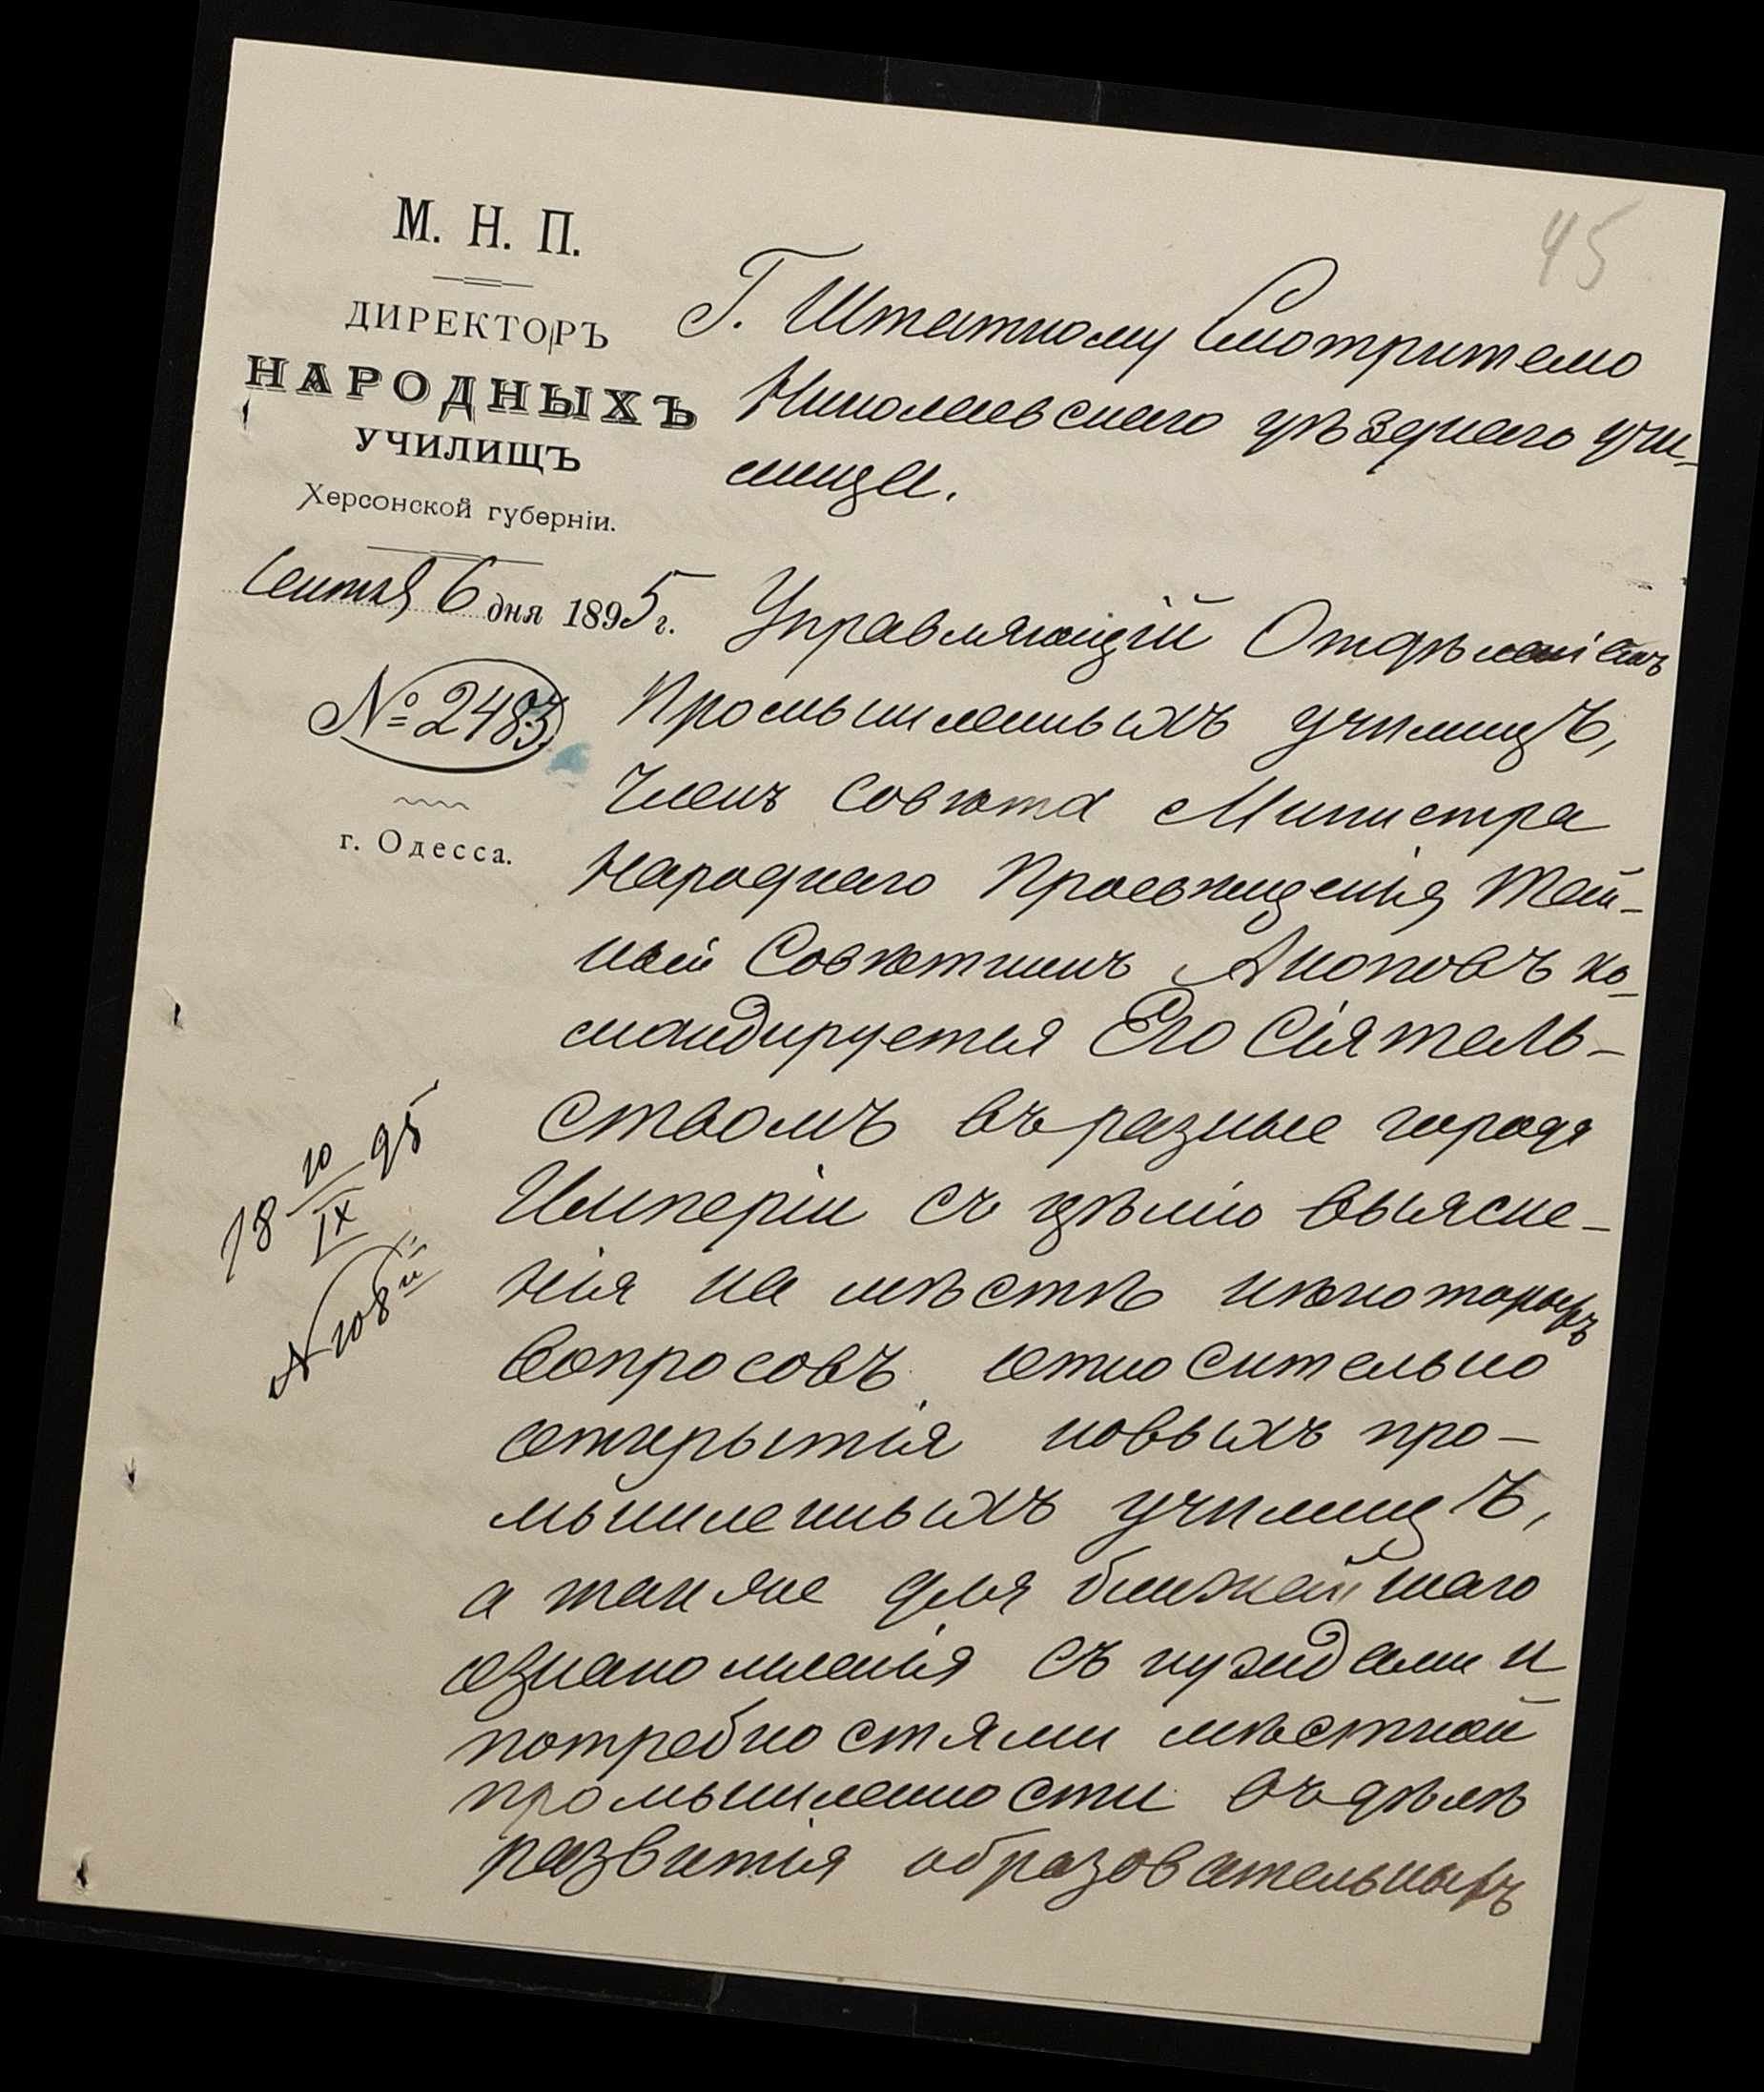 45
М. Н. П.
ДИРЕКТОРЪ
НАРОДНЫХЪ
УЧИЛИЩЪ
Херсонской губерніи.
Сентяб 6 дня 1895 г.
№ 2483
г. Одесса.
18 10/IX 95
№ 108
Г. Штатному Смотрителю
Николаевскаго уѣзднаго учи-
лища.
Управляющій Отдѣленіемъ
Промышленныхъ училищъ,
Членъ Совѣта Министра
Народнаго Просвѣщенія Тай-
ный Совѣтникъ Аноповъ ко-
мандируется Его Сіятель-
ствомъ въ разные города
Имперіи съ цѣлію выясне-
нія на мѣстѣ нѣкоторыхъ
вопросовъ относительно
открытія новыхъ про-
мышленныхъ училищъ,
а также для ближайшаго
ознакомленія съ нуждами и
потребностями мѣстной
промышленности въ дѣлѣ
развитія образовательныхъ